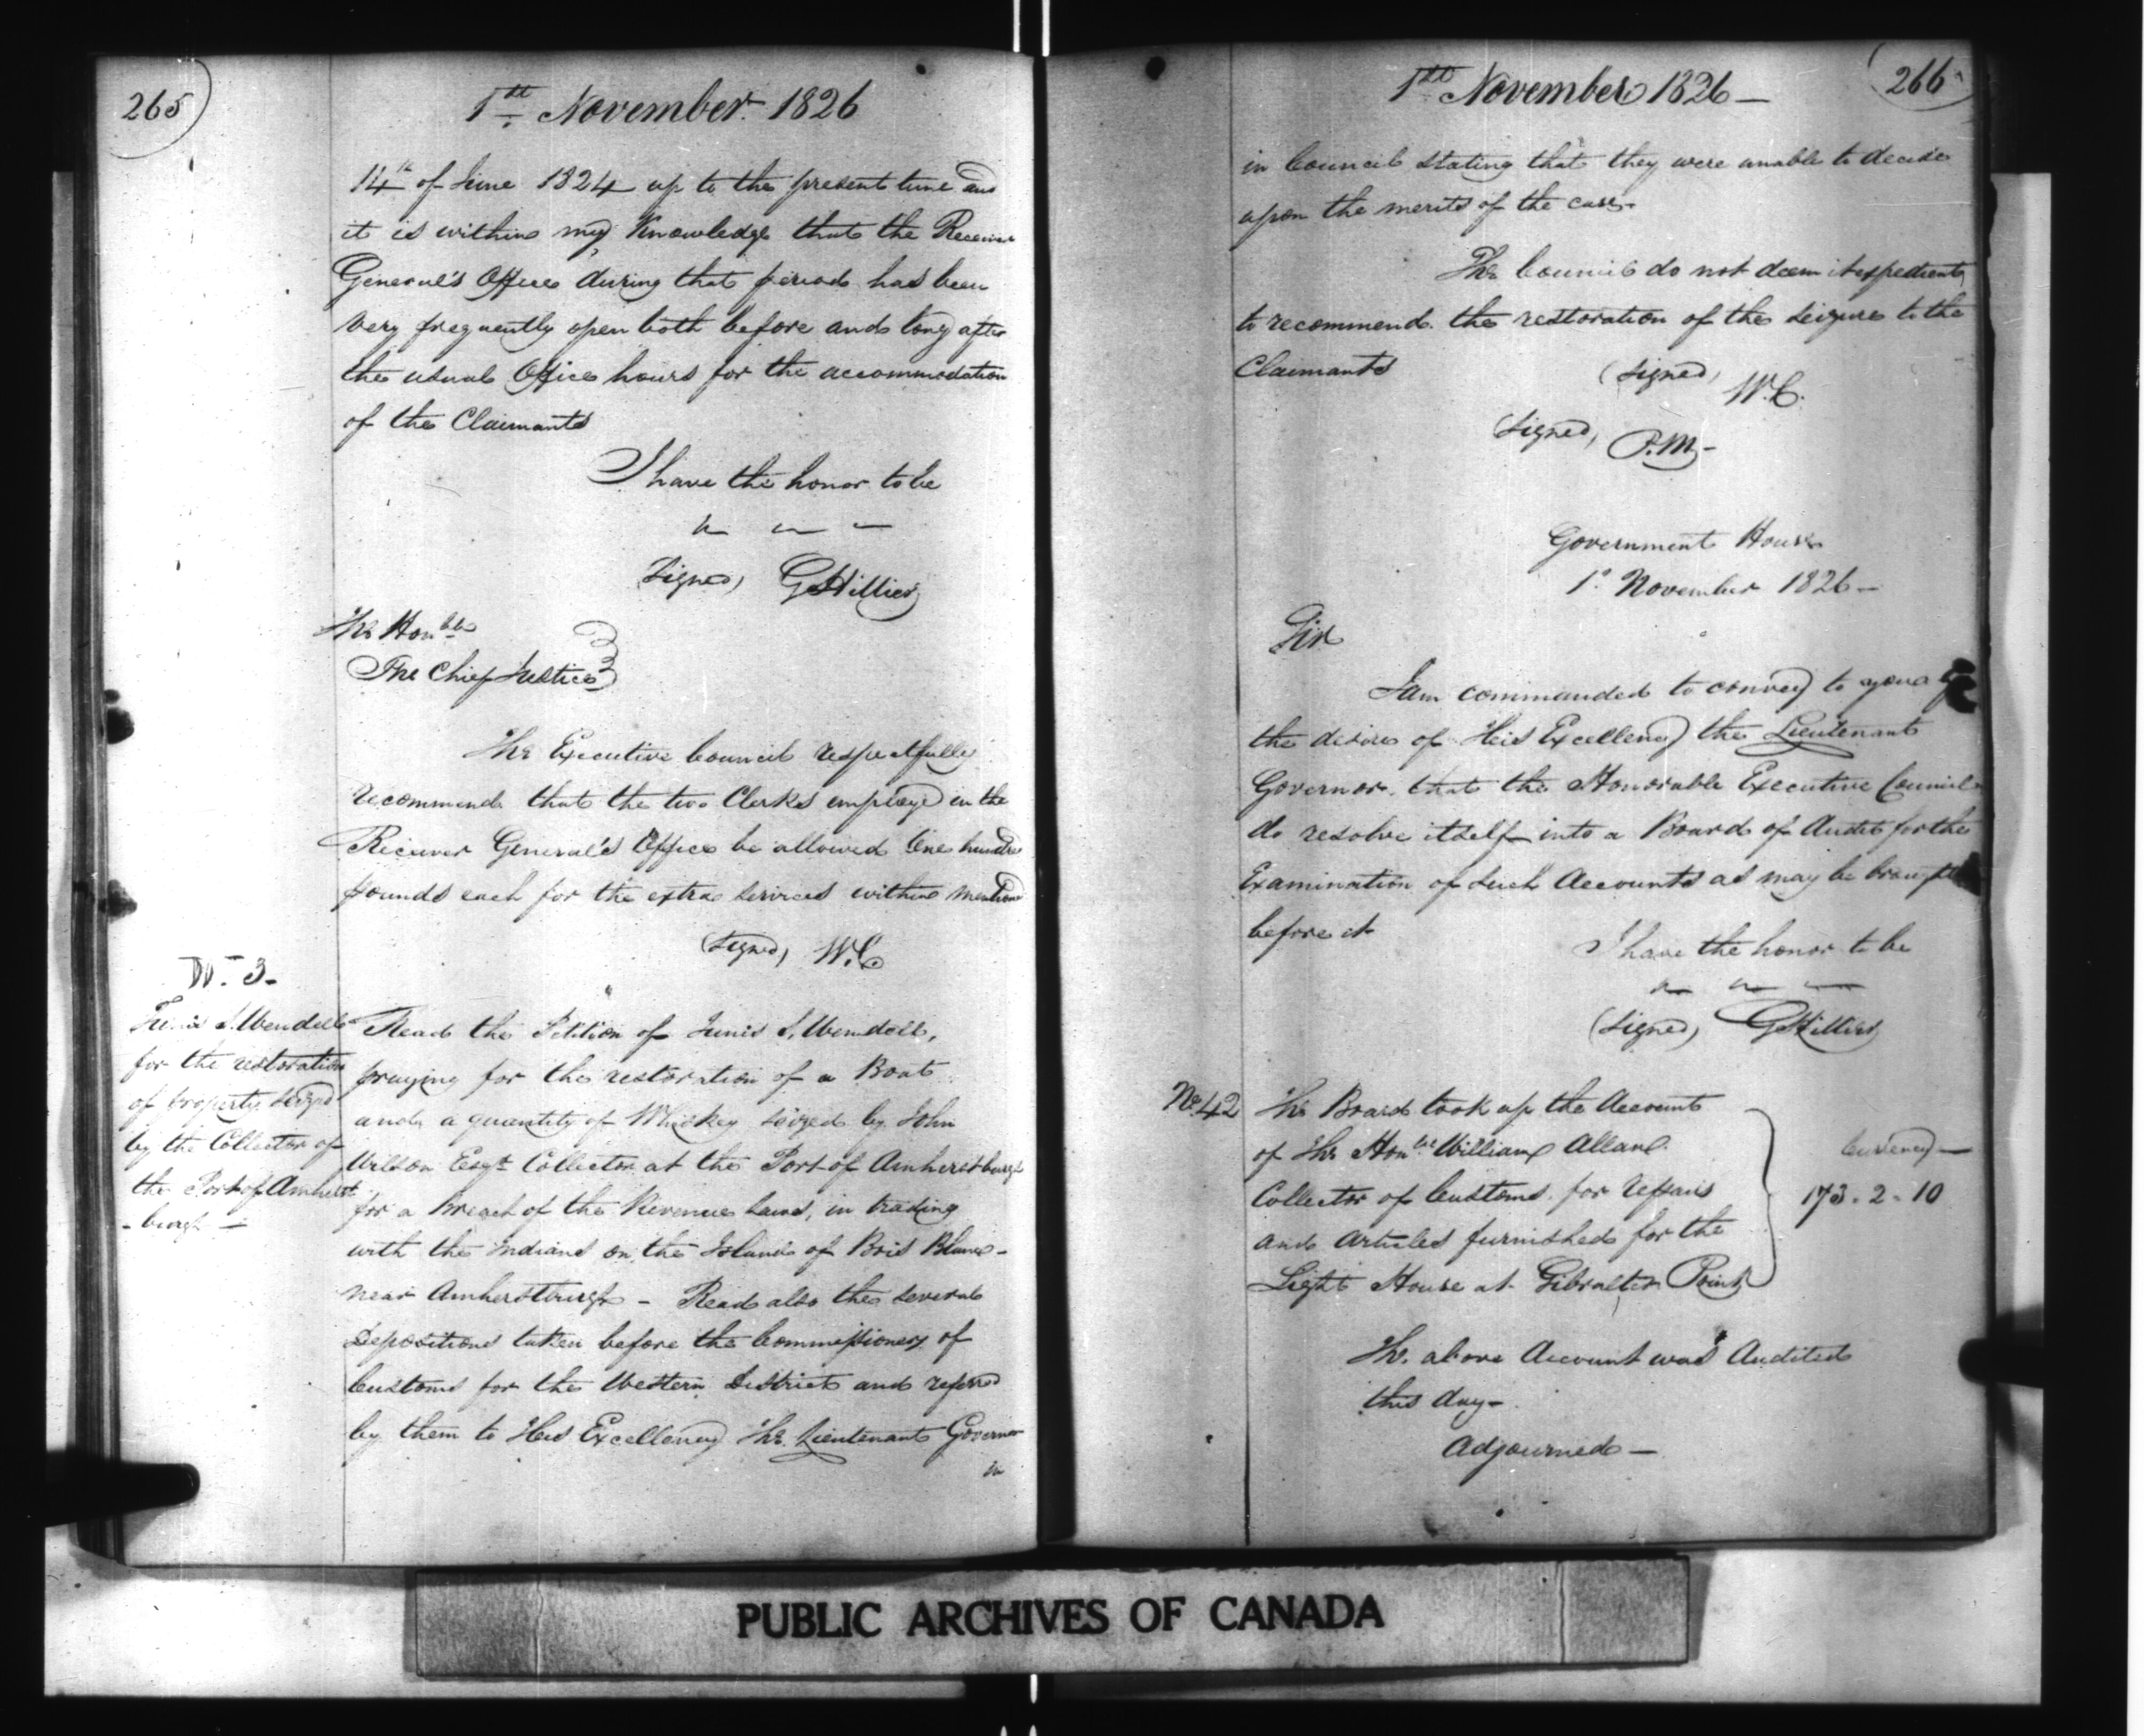 265
1st November 1826
14th of June 1824 up to the present time and
it is within my Knowledge that the Receiver
General's Office during that period has been
very frequently open both before and long after
the usual Office hours for the accommodation
of the Claimants
I have the honor to be
Signed, G Hillier
The Honble
The Chief Justice
The Executive Council respectfully
recommend that the two Clerks employed in the
Receiver General's Office be allowed One hundred
pounds each for the extra services within mentioned
(Signed, W.C
No. 3-
S. Wendell
for the restoration
of property seized
by the Collector of
the Port of Amherst
-burgh -
Read the Petition of S. Wendell,
praying for the restoration of a Boat
and a quantity of Whiskey seized by John
Wilson Esqr Collector at the Port of Amherstburgh
for a Breach of the Revenue Laws, in trading
with the Indians on the Island of Bois Blanc -
near Amherstburgh - Read also the several
Depositions taken before the Commissioners of
Customs for the Western District and referred
by them to His Excellency The Lieutenant Governor
in
1st November 1826 -
266
in Council stating that they were unable to decide
upon the merits of the case -
The Council do not deem it expedient
to recommend the restoration of the seizure to the
Claimants
(Signed, W.C.
Signed, P.M-
Government House
1st November 1826 -
Sir
I am commanded to convey to you
the desire of His Excellency the Lieutenant
Governor that the Honorable Executive Council
do resolve itself into a Board of Audit for the
Examination of such Accounts as may be brought
before it
I have the honor to be
(Signed, G Hillier
No. 42
The Board took up the Account
of The Honble William Allan
Collector of Customs for repairs
and Articles furnished for the
Light House at Gibralter Point
Currency -
173. 2. 10
The above Account was Audited
this day -
Adjourned -
PUBLIC ARCHIVES OF CANADA